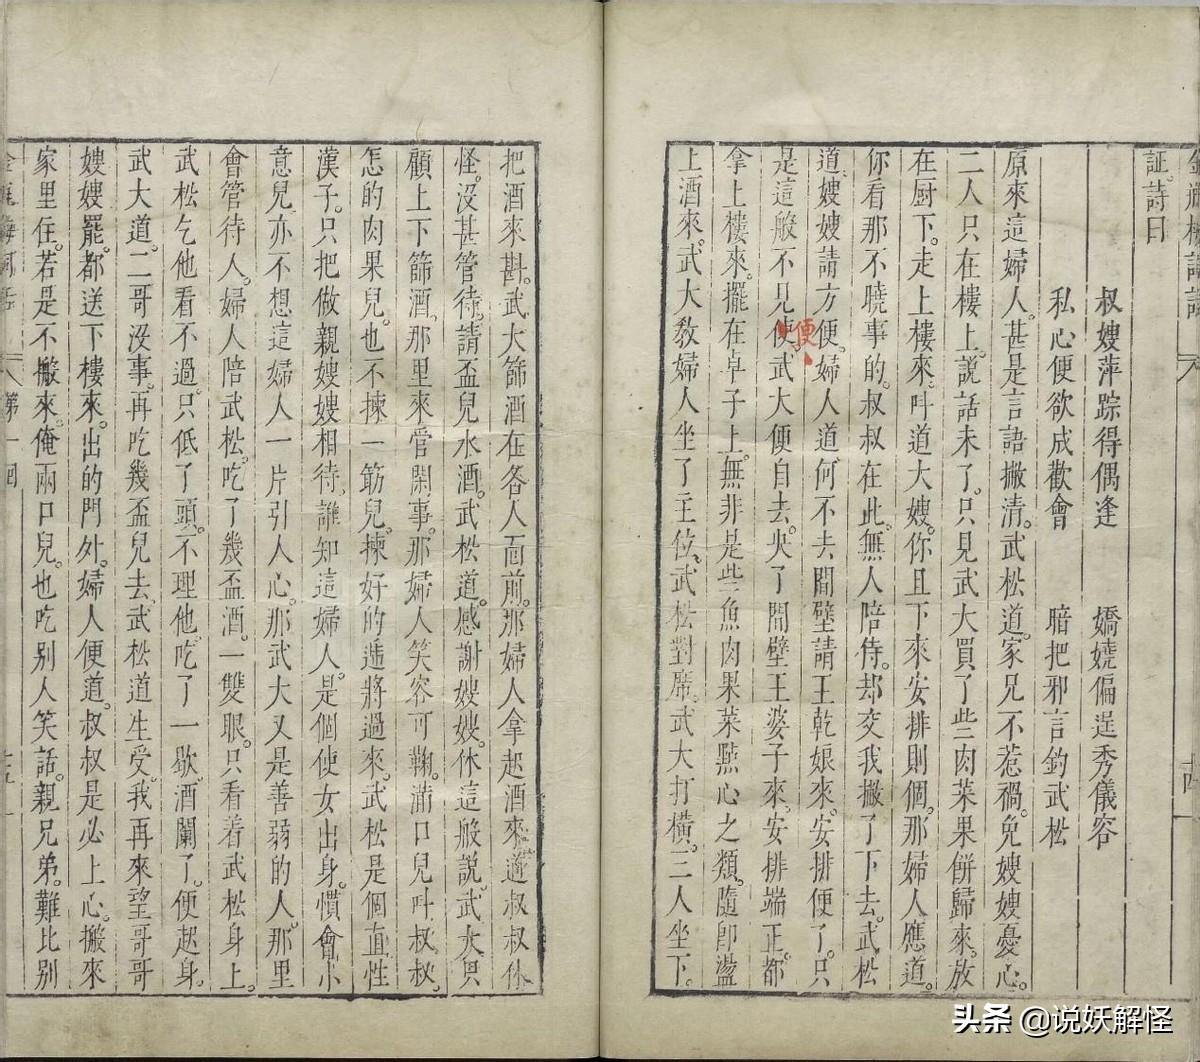 金瓶梅詞話 第一回 十四
証。詩曰
叔嫂萍踪得偶逢 嬌嬈偏逞秀儀容
私心便欲成歡會 暗把邪言釣武松
原來這婦人。甚是言語撇清。武松道。家兄不惹禍。免嫂嫂憂心。
二人只在樓上。說話未了。只見武大買了些肉菜果餅歸來。放
在厨下。走上樓來。叫道大嫂。你且下來安排則個。那婦人應道。
你看那不曉事的。叔叔在此。無人陪待。却交我撇了下去。武松
道。嫂嫂請方便。婦人道。何不去間壁請王乾娘來。安排便了。只
是這般不見使。武大便自去。央了間壁王婆子來。安排端正。都
拿上樓來。擺在卓子上。無非是些魚肉果菜點心之類。隨卽盪
上酒來。武大教婦人坐了主位。武松對席。武大打橫。三人坐下。
便
把酒來斟。武大篩酒在各人面前。那婦人拿起酒來道。叔叔休
怪。沒甚管待。請盃兒水酒。武松道。感謝嫂嫂。休這般說。武大只
顧上下篩酒。那里來管閑事。那婦人笑容可鞠。滿口兒叫叔叔。
怎的肉果兒。也不揀一筯兒。揀好的遞將過來。武松是個直性
漢子。只把做親嫂嫂相待。誰知這婦人。是個使女出身。慣會小
意兒。亦不想這婦人一片引人心。那武大又是善弱的人。那里
會管待人。婦人陪武松。吃了幾盃酒。一雙眼。只看着武松身上。
武松乞他看不過。只低了頭。不理他。吃了一歇。酒闌了。便起身。
武大道。二哥沒事。再吃幾盃兒去。武松道生受。我再來望哥哥
嫂嫂罷。都送下樓來。出的門外。婦人便道。叔叔是必上心。搬來
家里住。若是不搬來。俺兩口兒。也吃别人笑話。親兄弟。難比别
第一回
头条 @说妖解怪